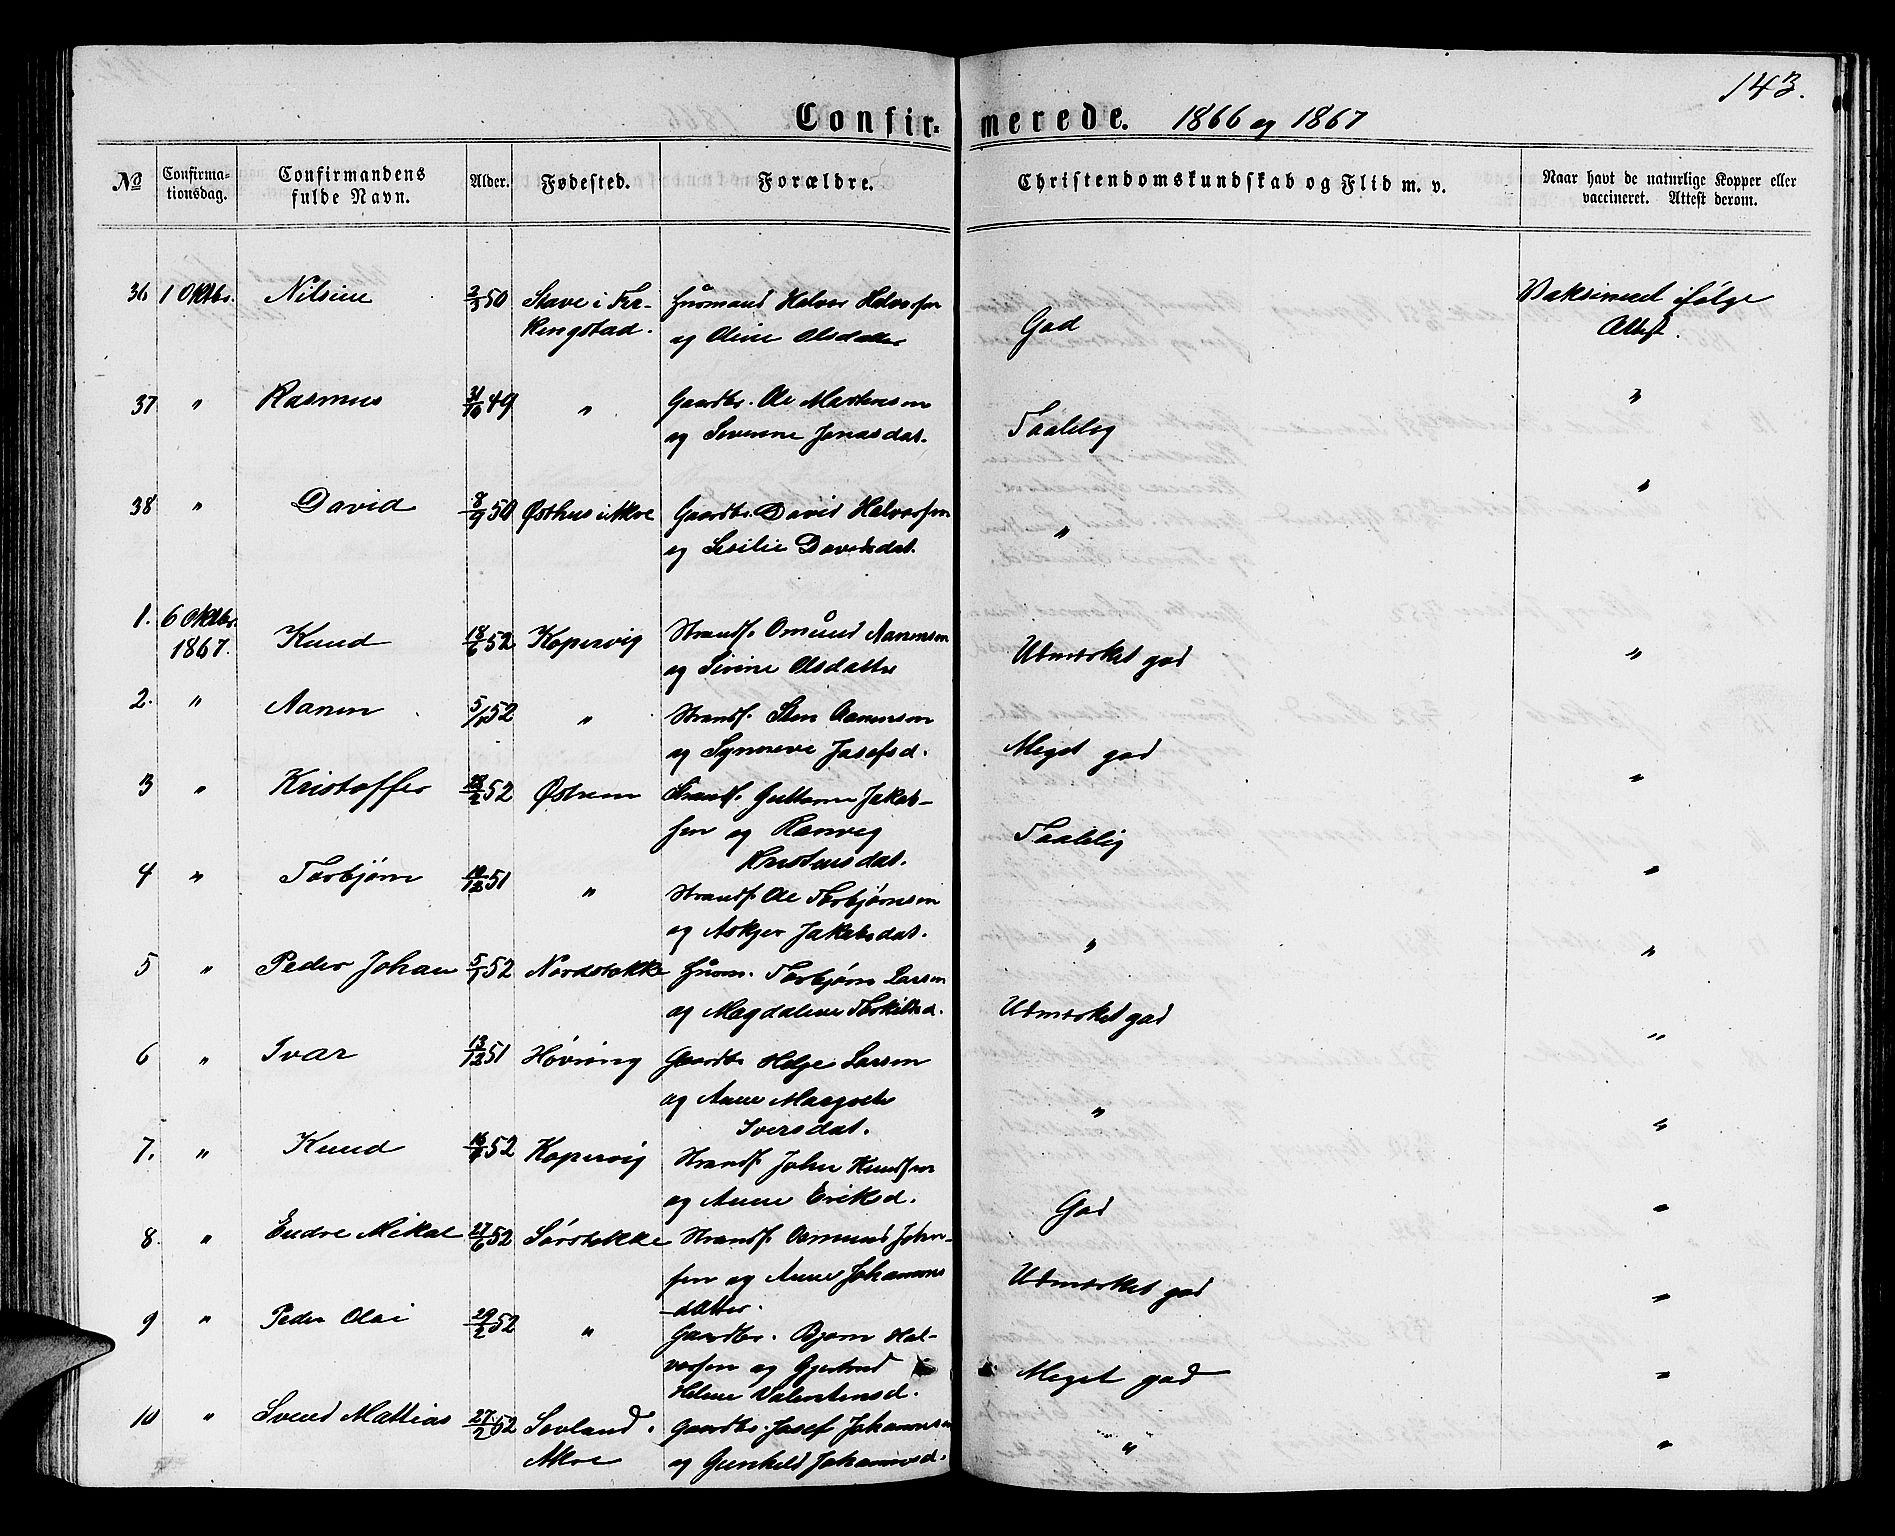 143.
Confirmerede. 1866 og 1867
No Confirmationsdag. Confirmandens fulde Navn. Alder. Fødested. Forældre. Christendomskundskab og Flid m. v. Naar havt de naturlige Kopper eller vaccineret. Attest derom.
36 1 Oktbr. Nilsine 2/3 50 Stave i Fer- Huusmand Helvor Helvorsen Vaksineret ifølge
kengstad. og Oline Olsdatter God Attest.
37 " Rasmus 31/10 49 " Gaardbr. Ole Martinsen "
og Severine Jonasdat. Taalelig
38 " David 8/9 50 Østhus i Akre Gaardbr. David Helvorsen "
og Sesilie Davidsdat. "
1. 6 Oktbr. Strandf. Omund Aanensen
1867. Knud 18/6 52 Kopervig og Serine Olsdatter Udmærket god "
2. " Aanen 5/1 52 " Strandf. Sten Aanensen
og Synneve Josefsd. Meget god
3 " Kristoffer 28/2 52 Østrem Strandf. Guttorm Jakob- "
sen og Ranveg Taalelig
Kristensdat.
4 " Torbjørn 12/12 51 " Strandf. Ole Torbjørnsen "
og Askjer Jakobsdat. "
5 " Peder Johan 5/1 52 Nordstokke Huusm. Torbjørn Larsen "
og Magdalene Torkildsd. Udmærket god
6 " Ivar 13/12 51 Høvring Gaardbr Helge Larsen "
og Anne Margrete "
Iversdat.
7. " Knud 16/6 52 Kopervig Strandf. John Knudsen "
og Anne Eriksd. God
8. " Endre Mikal 27/6 52 Sørstokke Strandf. Osmund John- "
sen og Anne Johannes Udmærket god
-datter. "
9 " Peder Olai 29/2 52 " Gaardbr. Bjørn Hal-
vorsen og Gjertrud Meget god "
Helene Valentinsd.
10 " Svend Mattias 27/2 52 Sevland. Gaardbr. Josef Johannesen
Akre og Gunhild Johannesd. " "